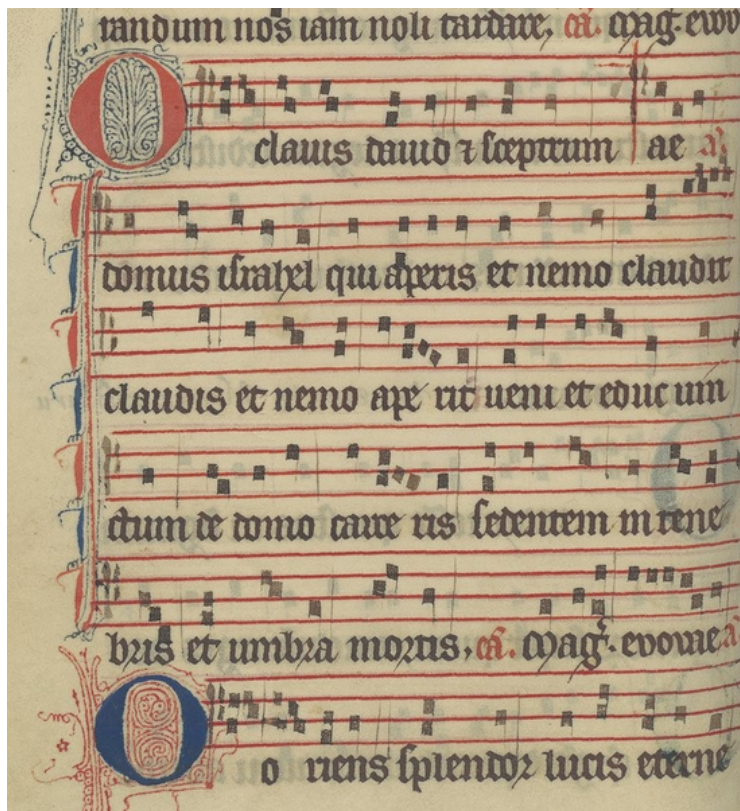 randum nos iam noli tardare, ca. Mag. evov
O clauis dauid ⁊ sceptrum ae a
domus israhel qui aperis et nemo claudit
claudis et nemo ape rit ueni et educ uin
ctum de domo carce ris sedentem in tene
bris et umbra mortis. ca. Mag. evovae a
O o riens splendor lucis eterne